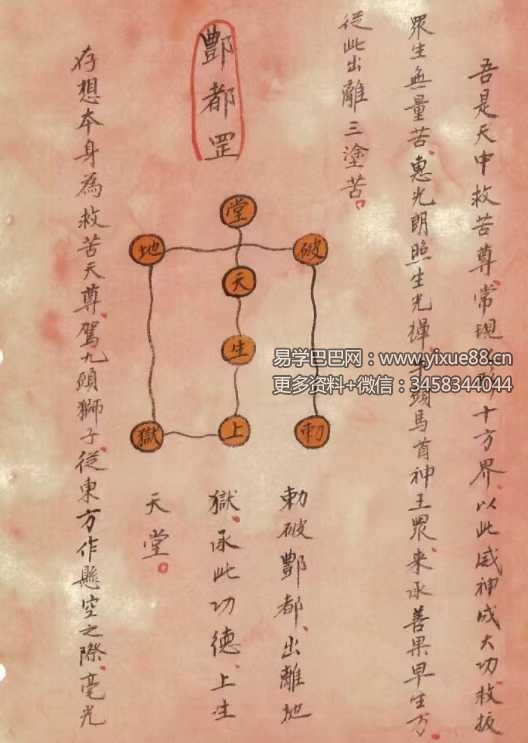 吾是天中救苦尊、常現形十方界、以此威神成大功、救拔
眾生無量苦、惠光朗照生光禅、頭馬首神王眾、来承善果早生方、
從此出離三塗苦。
酆都罡
堂
地
破
天
生
獄
上
勅
勅破酆都、出離地
獄、承此功德、上生
天堂。
存想本身為救苦天尊、駕九頭獅子、從東方作懸空之際、毫光
易学巴巴网：www.yixue88.cn
更多资料+微信：3458344044